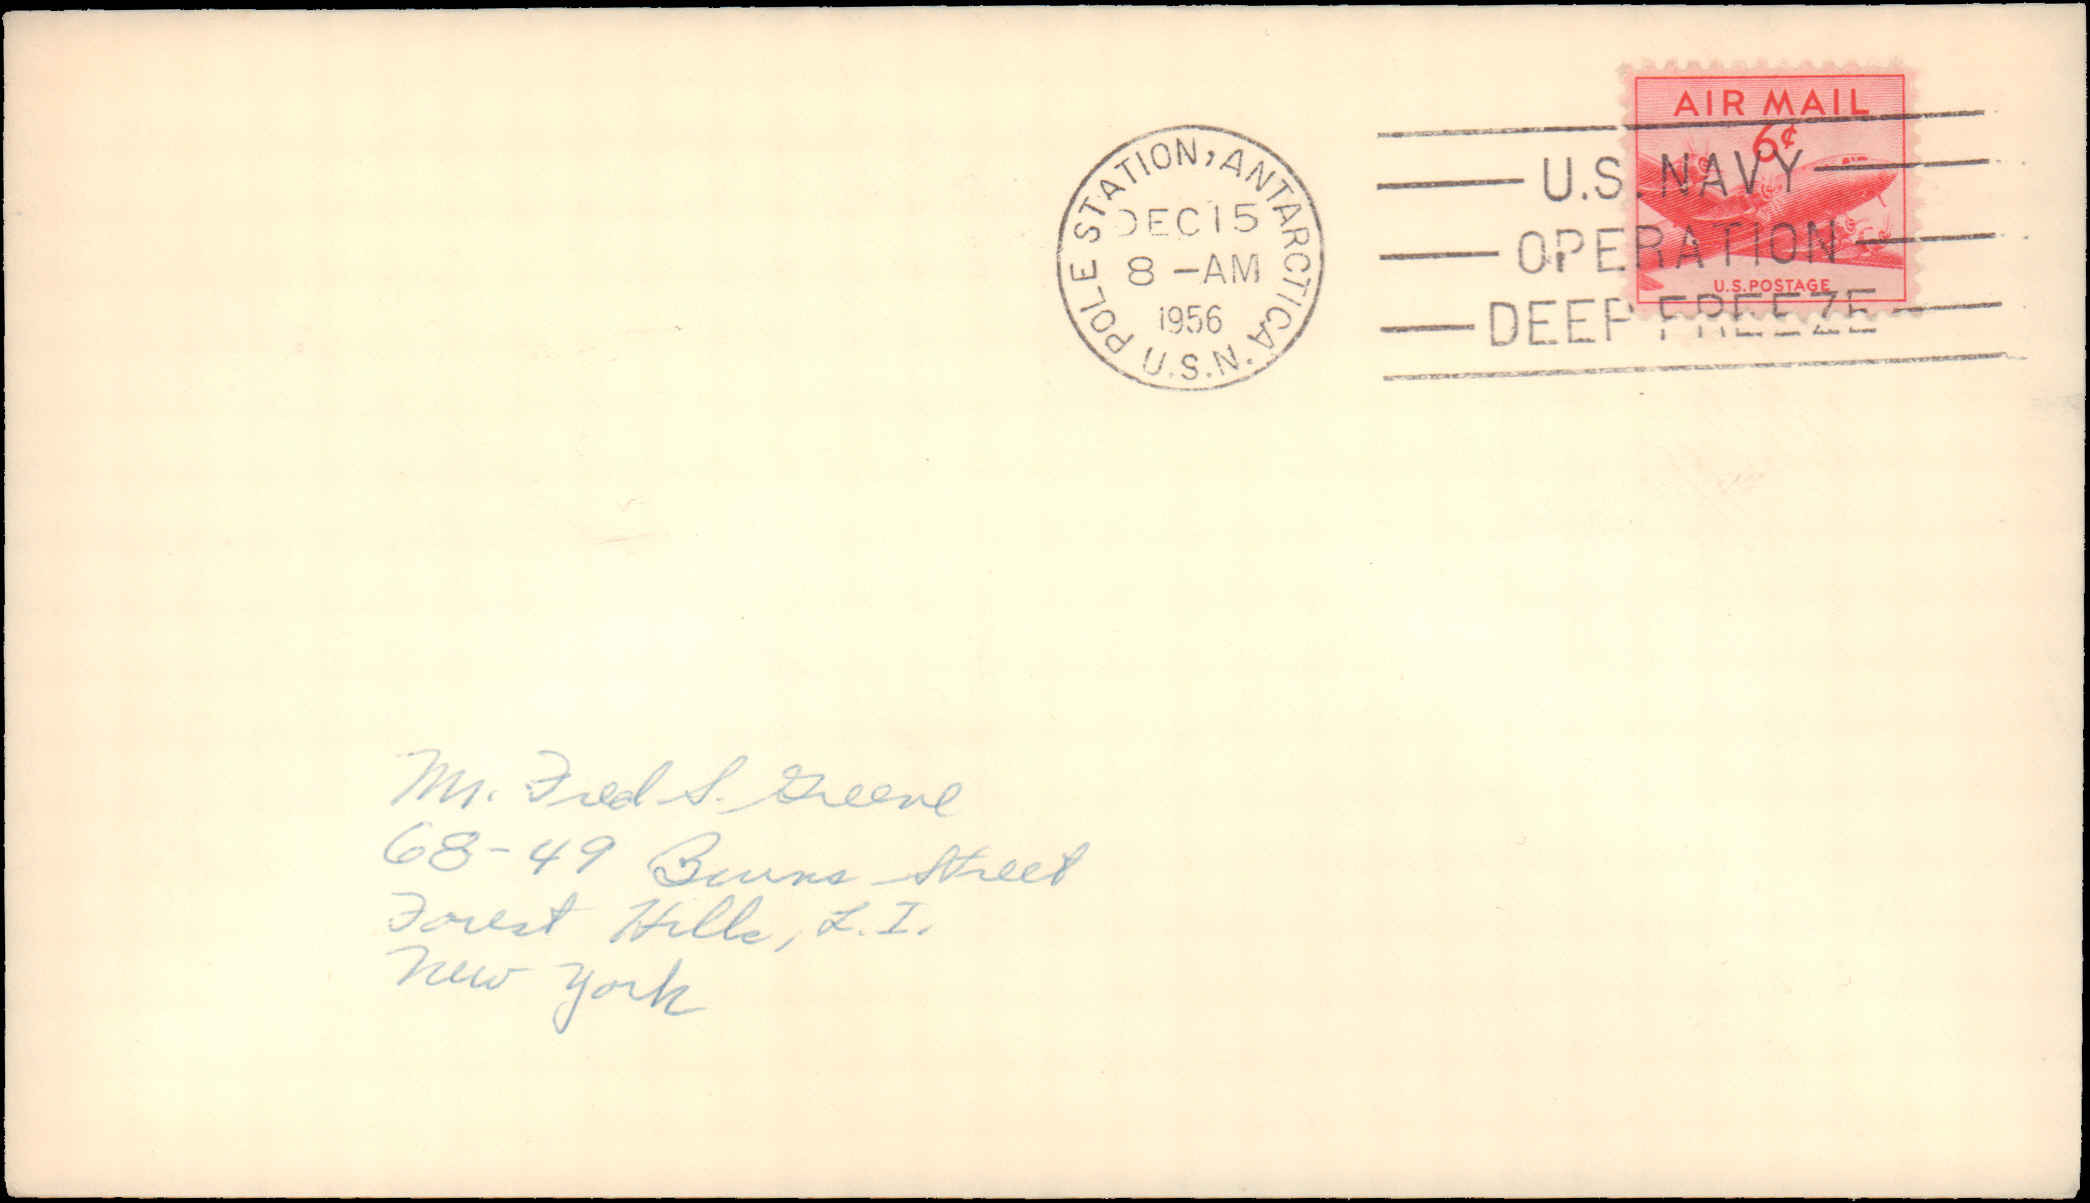 AIR MAIL
6¢
U.S. POSTAGE
POLE STATION, ANTARCTICA
DEC 15
8 - AM
1956
U.S.N.
U.S. NAVY
OPERATION
DEEP FREEZE
Mr. Fred S. Greene
68-49 Burns Street
Forest Hills, L.I.
New York